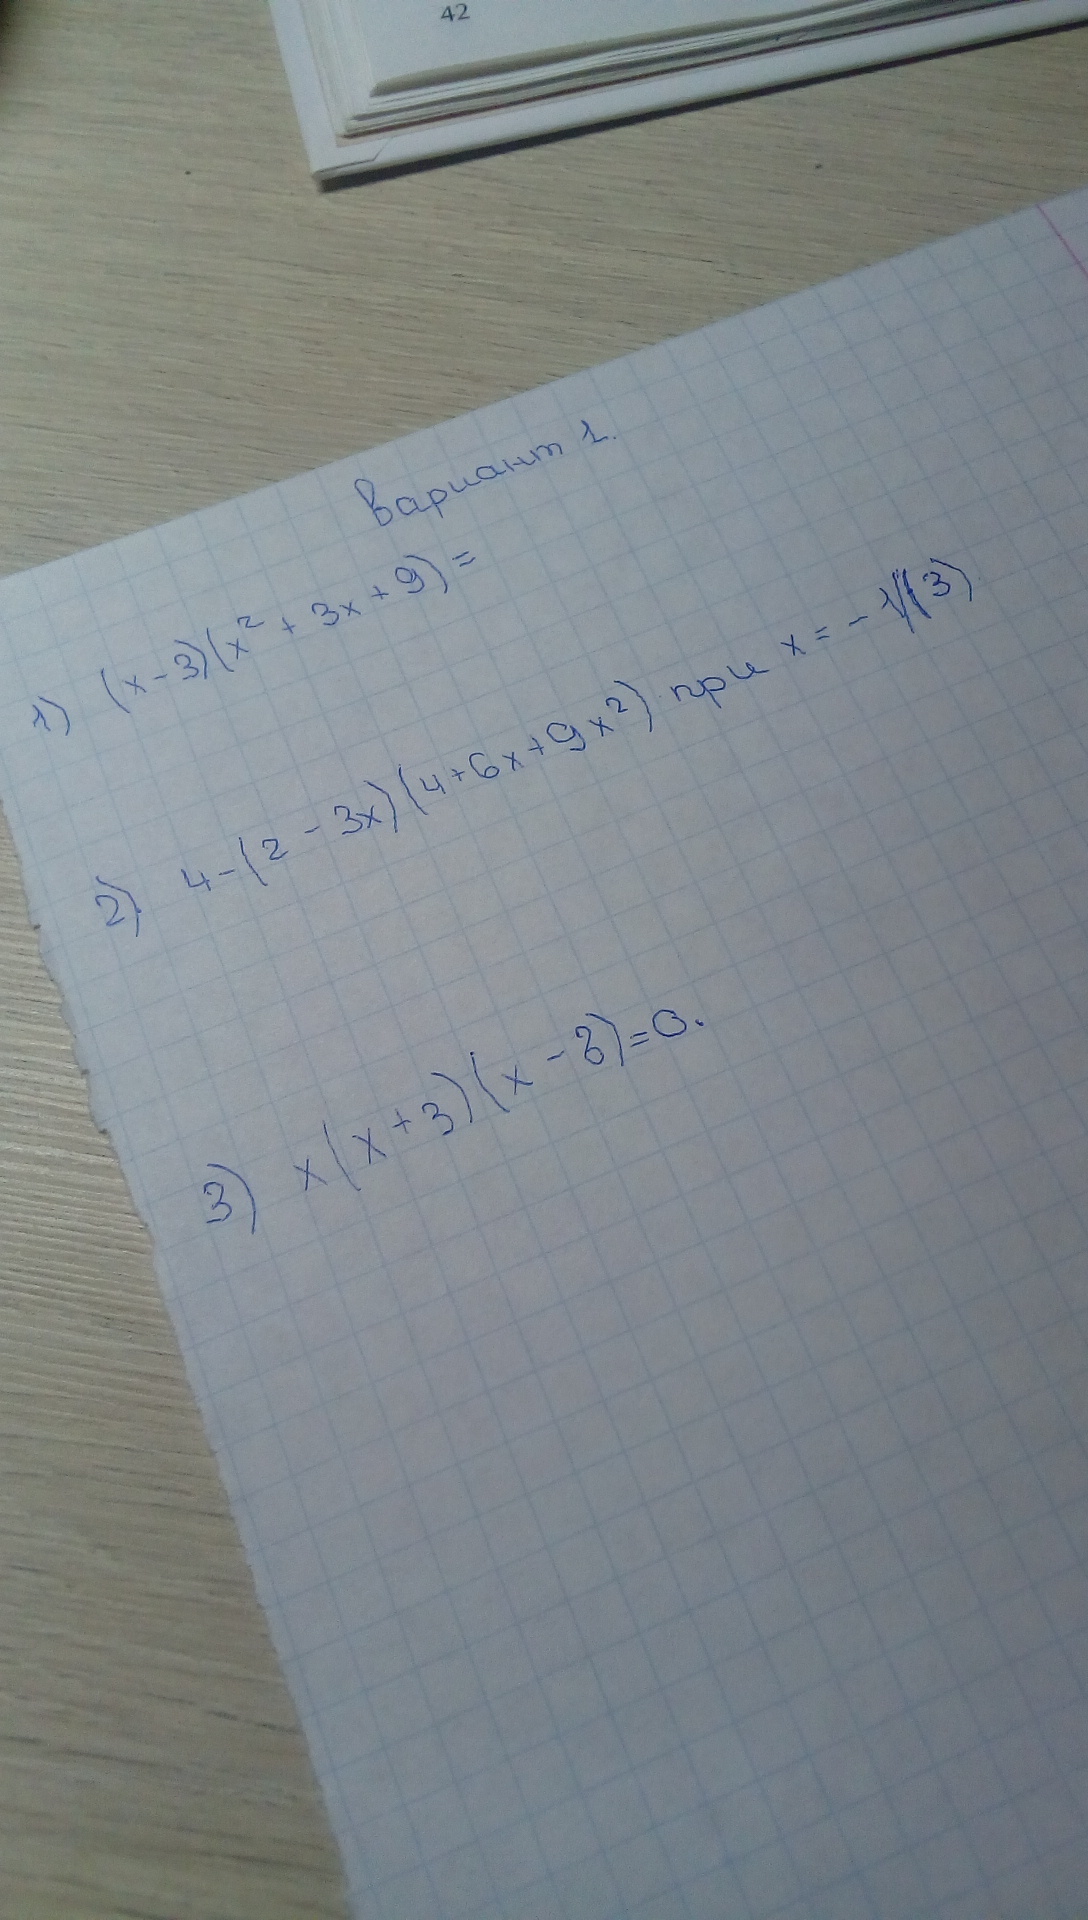 42
Вариант 1.
1) (x-3)(x² + 3x + 9) =
2) 4-(2-3x)(4+6x+9x²) при x = -
3) x(x+3)(x-3)=0.